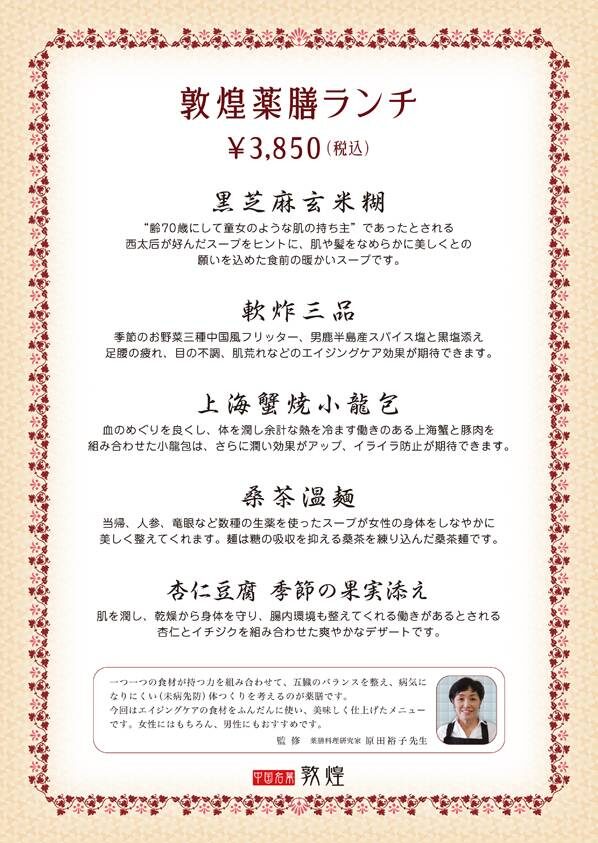 敦煌薬膳ランチ
¥3,850(税込)
黒芝麻玄米糊
“齢70歳にして童女のような肌の持ち主”であったとされる
西太后が好んだスープをヒントに、肌や髪をなめらかに美しくとの
願いを込めた食前の暖かいスープです。
軟炸三品
季節のお野菜三種中国風フリッター、男鹿半島産スパイス塩と黒塩添え
足腰の疲れ、目の不調、肌荒れなどのエイジングケア効果が期待できます。
上海蟹焼小龍包
血のめぐりを良くし、体を潤し余計な熱を冷ます働きのある上海蟹と豚肉を
組み合わせた小龍包は、さらに潤い効果がアップ、イライラ防止が期待できます。
桑茶温麺
当帰、人参、竜眼など数種の生薬を使ったスープが女性の身体をしなやかに
美しく整えてくれます。麺は糖の吸収を抑える桑茶を練り込んだ桑茶麺です。
杏仁豆腐 季節の果実添え
肌を潤し、乾燥から身体を守り、腸内環境も整えてくれる働きがあるとされる
杏仁とイチジクを組み合わせた爽やかなデザートです。
一つ一つの食材が持つ力を組み合わせて、五臓のバランスを整え、病気に
なりにくい(未病先防)体つくりを考えるのが薬膳です。
今回はエイジングケアの食材をふんだんに使い、美味しく仕上げたメニュー
です。女性にはもちろん、男性にもおすすめです。
監修 薬膳料理研究家 原田裕子先生
中国名菜 敦煌